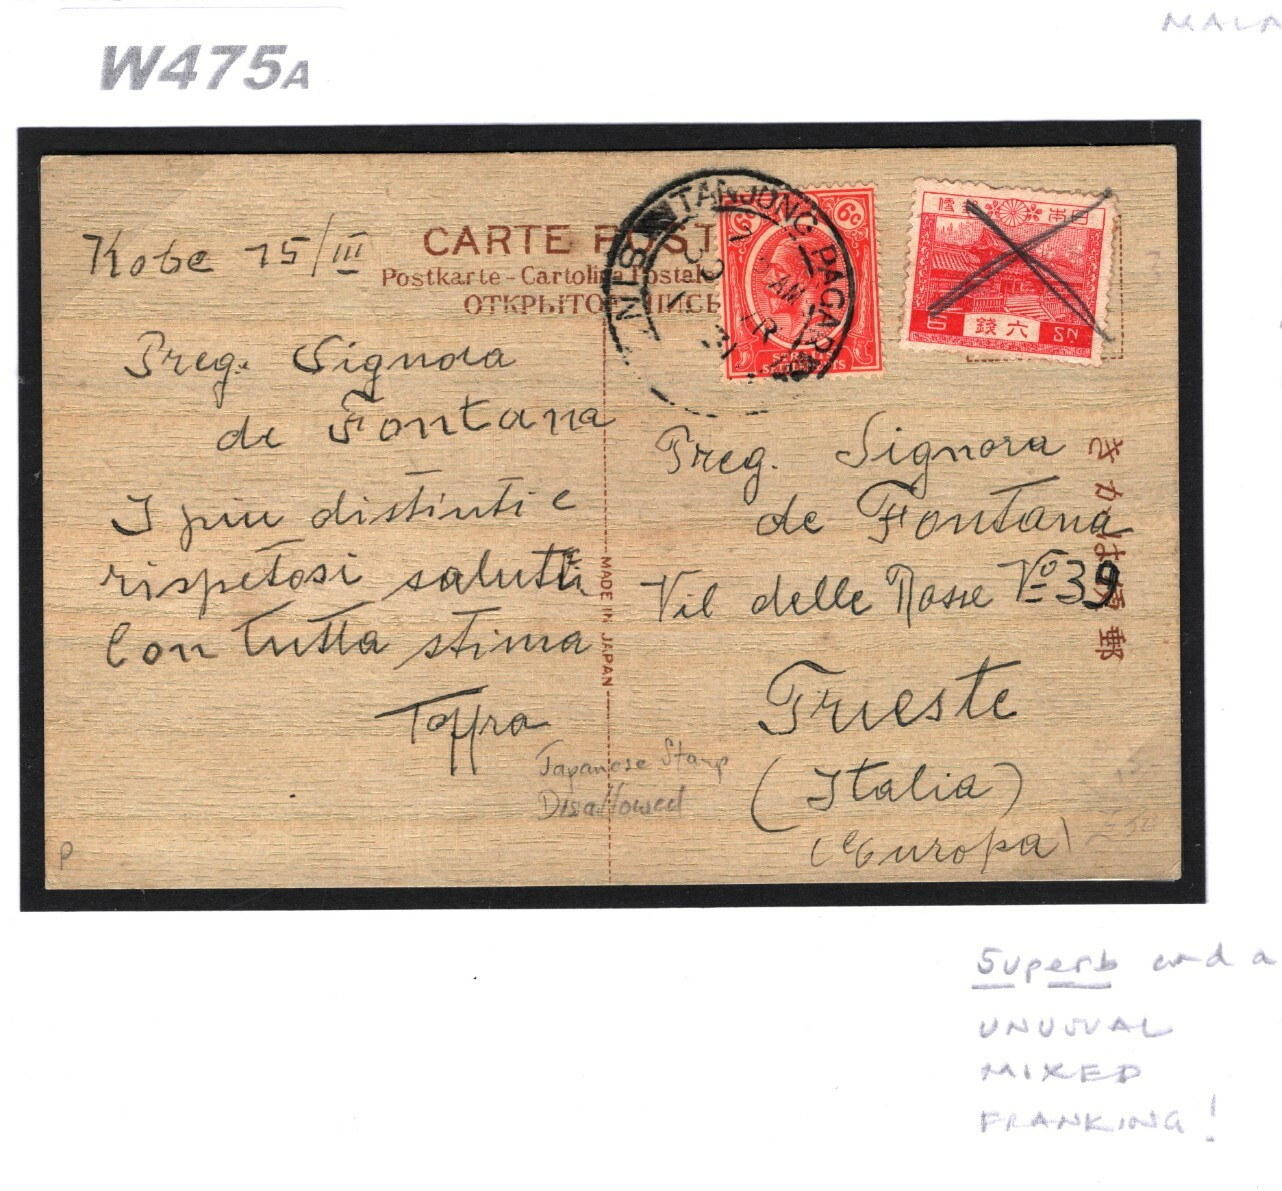 MALA
W475A
CARTE POST
Postkarte - Cartolina Postale
ОТКРЫТО ПИСЬ
TANJONG PAGAR
6c 6c
STRAITS
SETTLEMENTS
日本 郵便
六錢
6 SN
Kobe 15/III
Preg. Signora
de Fontana
I piu distinti e
rispetosi saluti
Con tutta stima
Toffra
MADE IN JAPAN
Preg. Signora
de Fontana
Vil delle Rose No 39
Trieste
(Italia)
(Europa)
きがは便郵
Japanese Stamp
Disallowed
P
Superb and a
UNUSUAL
MIXED
FRANKING!